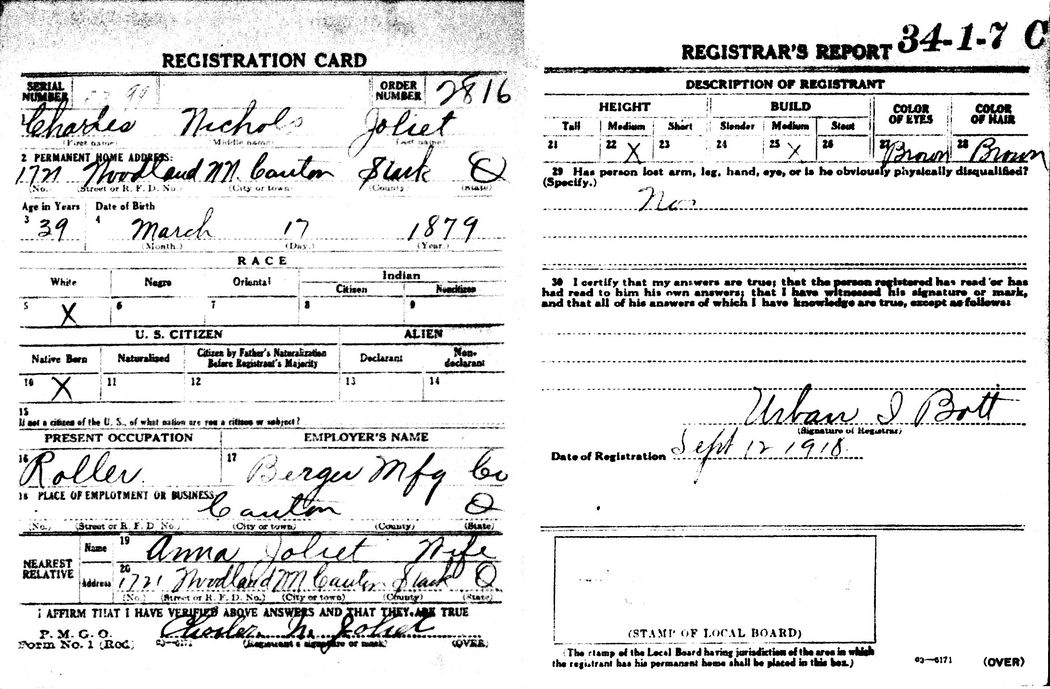 REGISTRATION CARD
SERIAL NUMBER 99 ORDER NUMBER 2816
1 Charles Nichols Joliet
(First name) (Middle name) (Last name)
2 PERMANENT HOME ADDRESS:
1721 Woodland Canton Stark O
(No.) (Street or R. F. D. No.) (City or town) (County) (State)
Age in Years Date of Birth
3 39 4 March 17 1879
(Month.) (Day.) (Year.)
RACE
White Negro Oriental Indian
Citizen Noncitizen
5 X 6 7 8 9
U. S. CITIZEN ALIEN
Native Born Naturalized Citizen by Father's Naturalization Before Registrant's Majority Declarant Non-declarant
10 X 11 12 13 14
15
If not a citizen of the U. S., of what nation are you a citizen or subject?
PRESENT OCCUPATION EMPLOYER'S NAME
16 Roller 17 Berger Mfg Co
18 PLACE OF EMPLOYMENT OR BUSINESS
Canton O
(No.) (Street or R. F. D No.) (City or town) (County) (State)
NEAREST RELATIVE
Name 19 Anna Joliet Wife
Address 20 1721 Woodland Canton Stark O
(No.) (Street or R. F. D. No.) (City or town) (County) (State)
I AFFIRM THAT I HAVE VERIFIED ABOVE ANSWERS AND THAT THEY ARE TRUE
P. M. G. O.
Form No. 1 (Red) 03—6171 (Registrant's signature or mark) (OVER)
Joliet
REGISTRAR'S REPORT 34-1-7 C
DESCRIPTION OF REGISTRANT
HEIGHT BUILD COLOR OF EYES COLOR OF HAIR
Tall Medium Short Slender Medium Stout
21 22 X 23 24 25 X 26 27 Brown 28 Brown
29 Has person lost arm, leg, hand, eye, or is he obviously physically disqualified?
(Specify.)
30 I certify that my answers are true; that the person registered has read or has
had read to him his own answers; that I have witnessed his signature or mark,
and that all of his answers of which I have knowledge are true, except as follows:
Urban I Bott
(Signature of Registrar)
Date of Registration Sept 12 1918
(STAMP OF LOCAL BOARD)
(The stamp of the Local Board having jurisdiction of the area in which
the registrant has his permanent home shall be placed in this box.)
03—6171 (OVER)